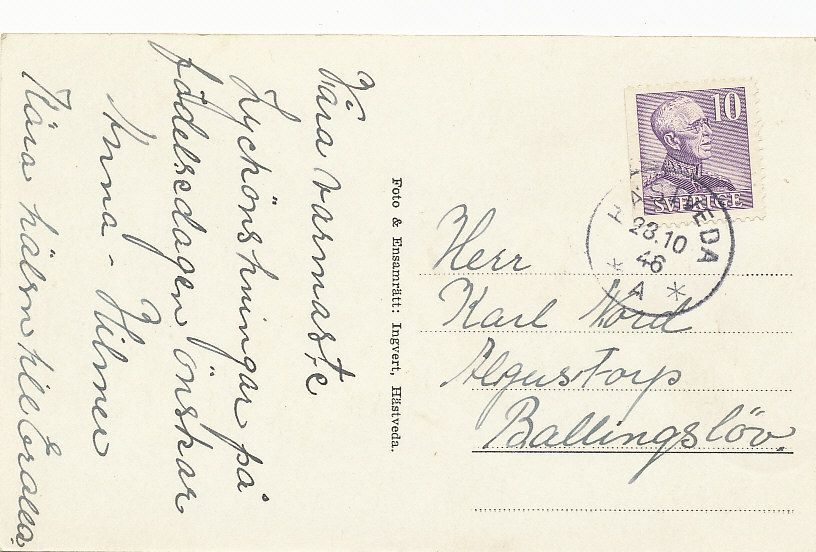 Våra varmaste
Lyckönskningar på
födelsedagen önskar
Anna - Hilmer
Kära hälsn till Eralla
Foto & Ensamrätt: Ingvert, Hästveda.
10
SVERIGE
H VEDA
28.10
46
* A *
Herr
Karl Nord
Algustorp
Ballingslöv.